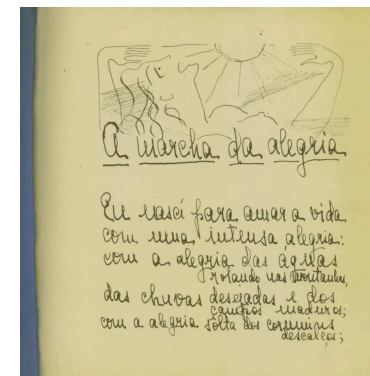 A marcha da alegria
Eu nascí para amar a vida
com uma intensa alegria:
com a alegria das águas
rolando nas montanhas,
das chuvas desejadas e dos
campos maduros;
com a alegria sôlta dos corumins
descalços;